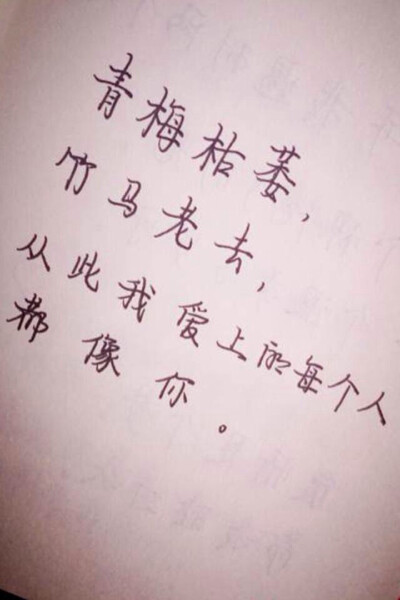 青梅枯萎，
竹马老去，
从此我爱上的每个人
都像你。